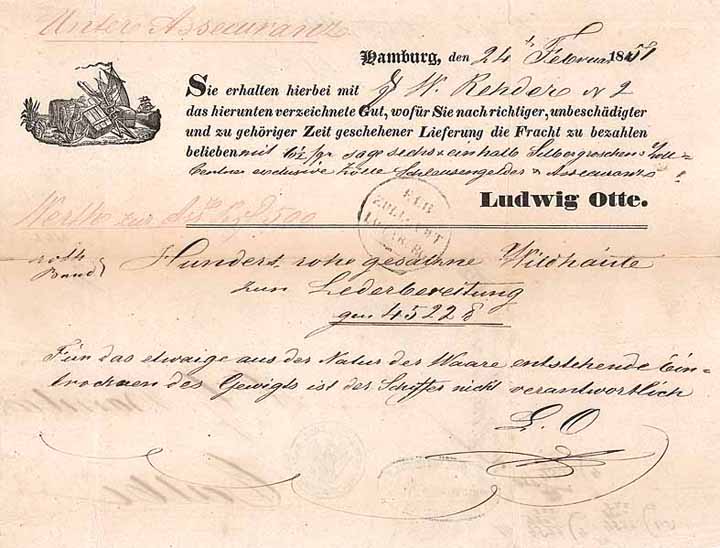 Unter Assecuranz
Hamburg, den 24 Februar 1851
Sie erhalten hierbei mit J W. Rehder N 2
das hierunten verzeichnete Gut, wofür Sie nach richtiger, unbeschädigter
und zu gehöriger Zeit geschehener Lieferung die Fracht zu bezahlen
belieben mit 6½ sgr sage sechs & einhalb Silbergroschen Zoll-
Centner exclusive Zölle Schleusengelder & Assecuranz
Ludwig Otte.
Werth zur 500
roth
Band
Hundert rohe gesalzne Wildhäute
zum Lederbereitung
4522 ℔
Für das etwaige aus der Natur der Waare entstehende Ein-
trocknen des Gewigts ist der Schiffer nicht verantwortlich
L. O